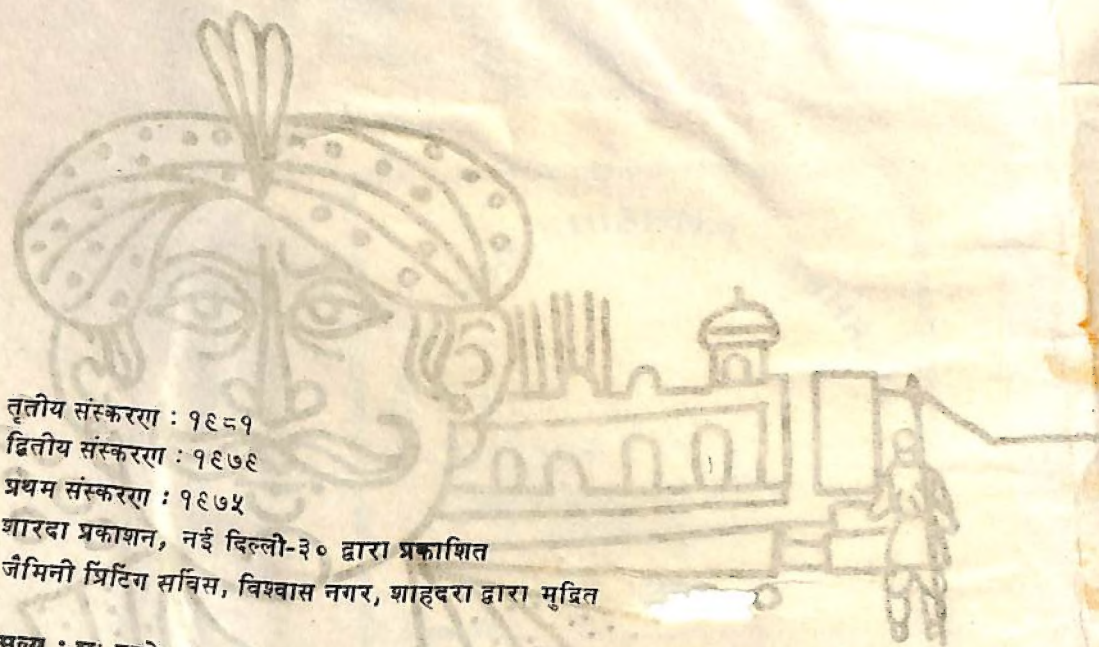 तृतीय संस्करण : १९८१
द्वितीय संस्करण : १९७९
प्रथम संस्करण : १९७५
शारदा प्रकाशन, नई दिल्ली-३० द्वारा प्रकाशित
जैमिनी प्रिंटिंग सर्विस, विश्वास नगर, शाहदरा द्वारा मुद्रित
मूल्य :